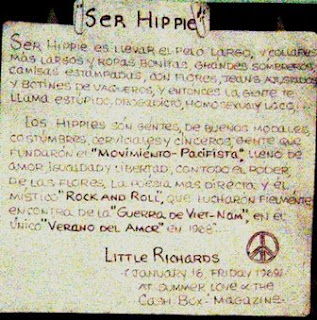 "SER HIPPIE"
SER HIPPIE ES LLEVAR EL PELO LARGO, Y COLLARES
MAS LARGOS Y ROPAS BONITAS, GRANDES SOMBREROS,
CAMISAS ESTAMPADAS, CON FLORES, JEANS AJUSTADOS
Y BOTINES DE VAQUEROS, Y ENTONCES LA GENTE TE
LLAMA ESTUPIDO, DROGADICTO, HOMOSEXUAL Y LOCO,
LOS HIPPIES SON GENTES, DE BUENOS MODALES,
COSTUMBRES, CERVICIALES Y CINCEROS, GENTE QUE
FUNDARON EL "MOVIMIENTO-PACIFISTA", LLENO DE
AMOR, IGUALDAD Y LIBERTAD, CON TODO EL PODER
DE LAS FLORES, LA POESIA MAS DIRECTA Y EL
MISTICO "ROCK AND ROLL", QUE LUCHARON FIELMENTE
EN CONTRA DE LA "GUERRA DE VIET-NAM", EN EL
UNICO "VERANO DEL AMOR" EN 1968".
LITTLE RICHARDS
(JANUARY 16, FRIDAY 1969)
AT SUMMER LOVE & THE
CASH BOX-MAGAZINE-